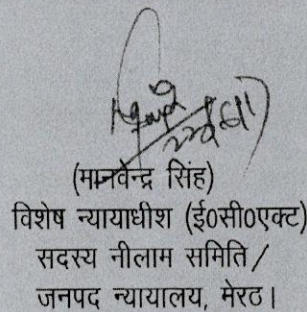 (मानवेन्द्र सिंह)
विशेष न्यायाधीश (ई0सी0एक्ट)
सदस्य नीलाम समिति /
जनपद न्यायालय, मेरठ।